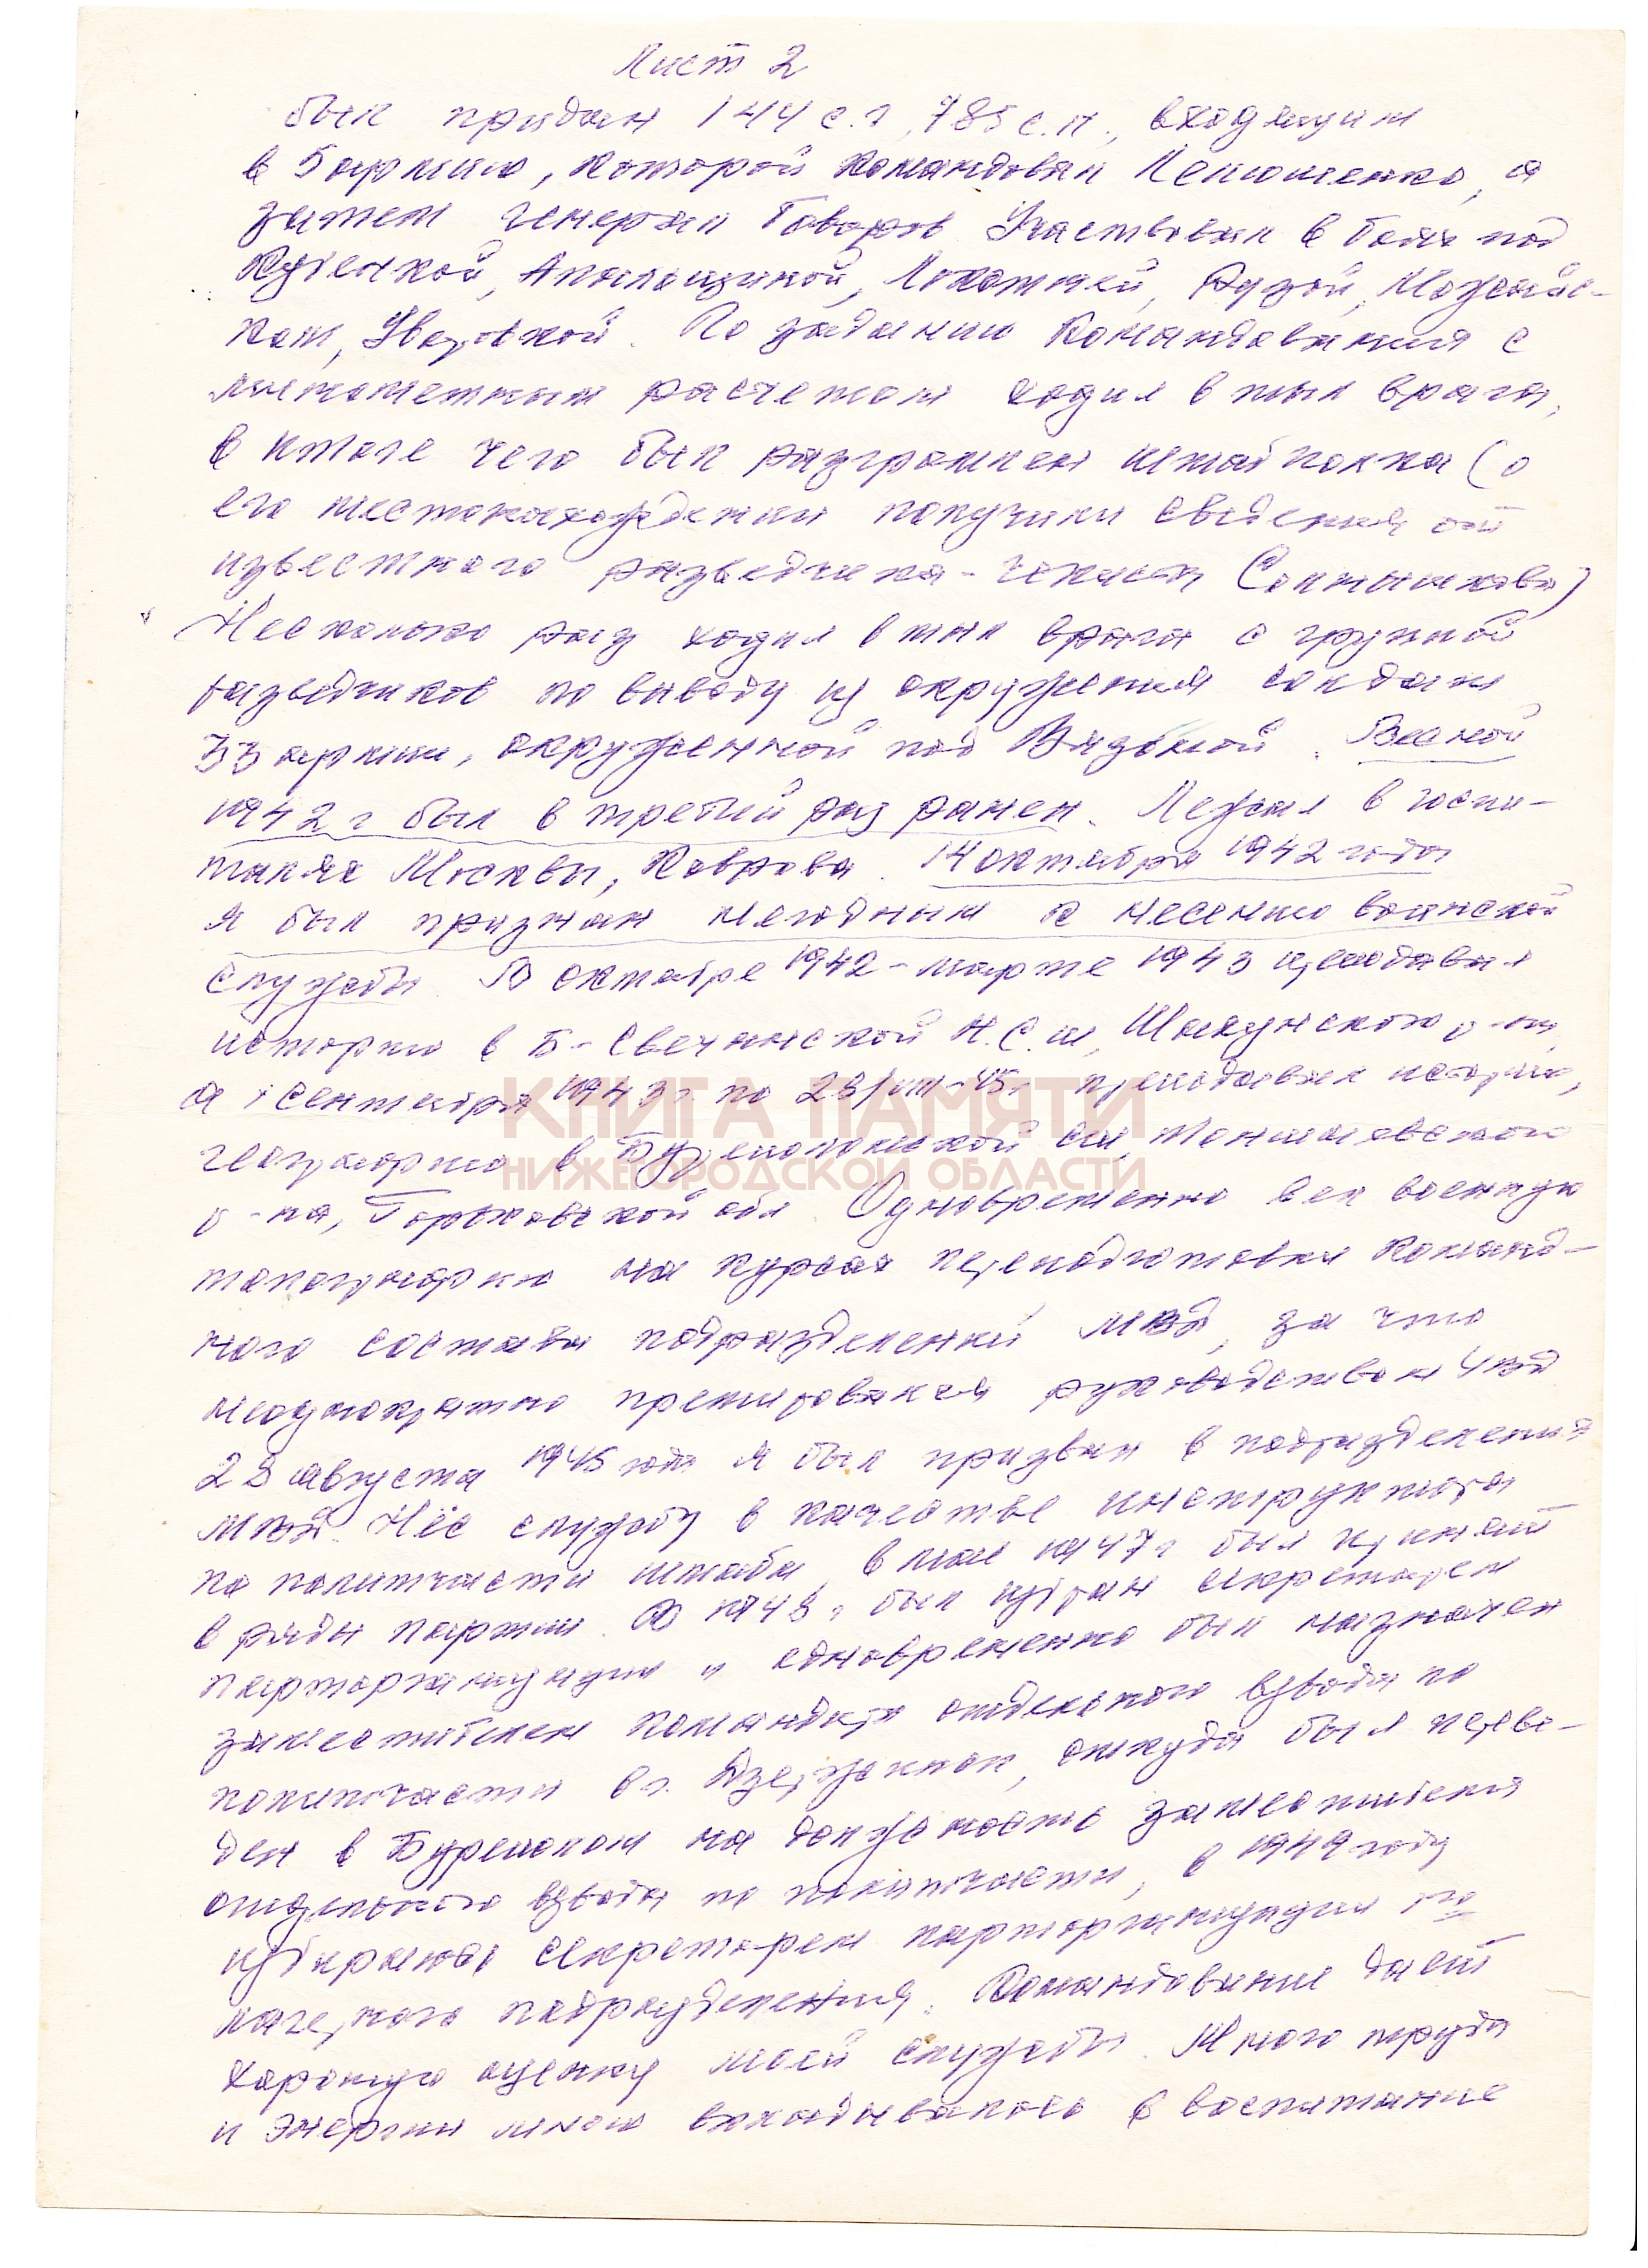 Лист 2
был придан 144 с.д, 785 с.п., входящим
в 5 армию, которой командовал Лелюшенко, а
затем генерал Говоров. Участвовал в боях под
Кубинкой, Апальщиной, Локотней, Рузой, Можайс-
ком, Уваровкой. По заданию командования с
минометным расчетом ходил в тыл врага,
в итоге чего был разгромлен штаб полка (о
его местонахождении получили сведения от
известного разведчика-чекиста Солтыникова)
Несколько раз ходил в тыл врага с группой
разведчиков по выводу из окружения солдат
33 армии, окруженной под Вязьмой. Весной
1942 г был в третий раз ранен. Лежал в госпи-
талях Москвы, Коврова. 14 октября 1942 года
я был признан негодным к несению воинской
службы. В октябре 1942 - марте 1943 преподавал
историю в Б-Свечанской Н.С.ш, Шахунского р-на,
а с сентября 1943 г. по 28/VIII-45г преподавал историю,
географию в Буреполомской сш, Тоншаевского
р-на, Горьковской обл. Одновременно вел военную
топографию на курсах переподготовки команд-
ного состава подразделений МВД, за что
неоднократно премировался руководством УМВД
28 августа 1945 года я был призван в подразделения
МВД. Нёс службу в качестве инструктора
по политчасти штаба, в мае 1947 г был принят
в ряды партии. В 1948 г был избран секретарем
парторганизации и одновременно был назначен
заместителем командира отдельного взвода по
политчасти в г. Дзержинск, откуда был переве-
ден в Буреполом на должность заместителя
отдельного взвода по политчасти, в 1949 году
избираюсь секретарем парторганизации
лагерного подразделения. Командование дает
хорошую оценку моей службы. Много труда
и энергии мною вкладывалось в воспитание
КНИГА ПАМЯТИ
НИЖЕГОРОДСКОЙ ОБЛАСТИ